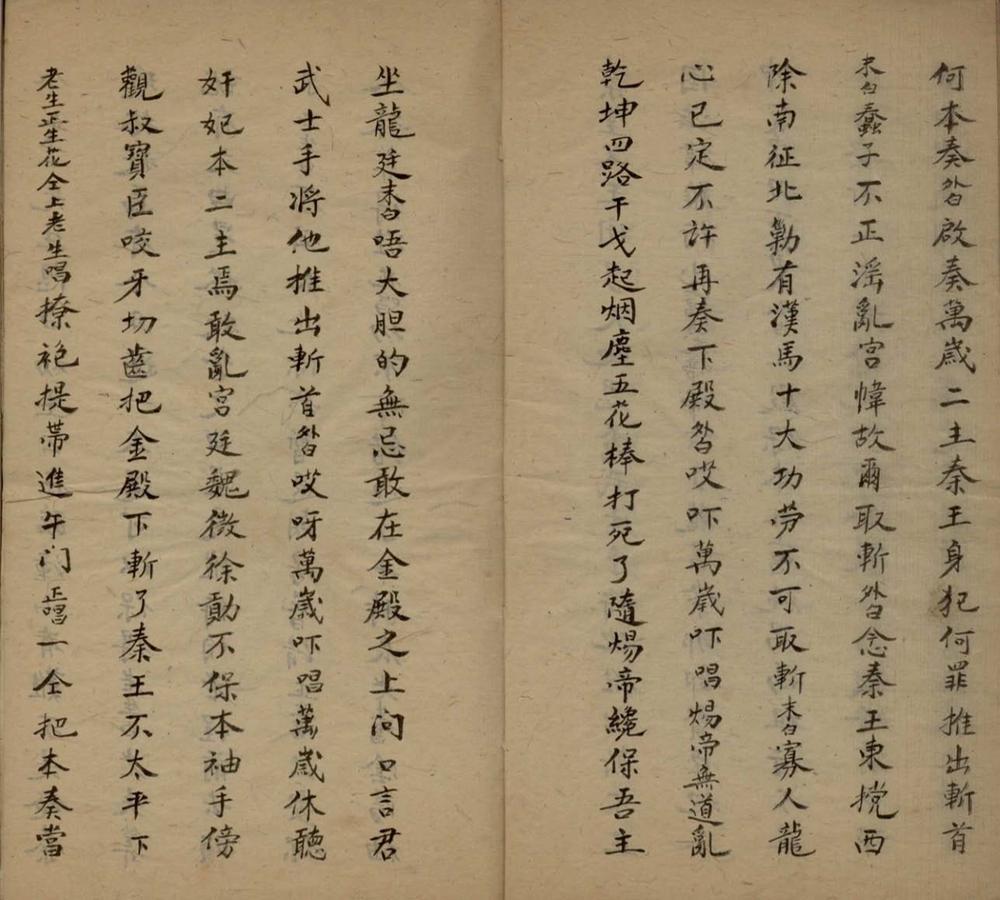 何本奏外白啟奏萬歲二主秦王身犯何罪推出斬首
末白蠢子不正滛亂宮幃故爾取斬外白念秦王東擋西
除南征北勦有漢馬十大功劳不可取斬末白寡人龍
心已定不許再奏下殿外白哎吓萬歲吓唱煬帝無道亂
乾坤四路干戈起烟塵五花棒打死了隨煬帝纔保吾主
坐龍廷末白唔大胆的無忌敢在金殿之上问口言君
武士手将他推出斬首外白哎呀萬歲吓唱萬歲休聽
奸妃本二主焉敢亂宮廷魏徵徐勣不保本袖手傍
觀叔寶臣咬牙切齒把金殿下斬了秦王不太平下
老生正生花仝上老生唱撩袍提帶進午门正唱一仝把本奏當